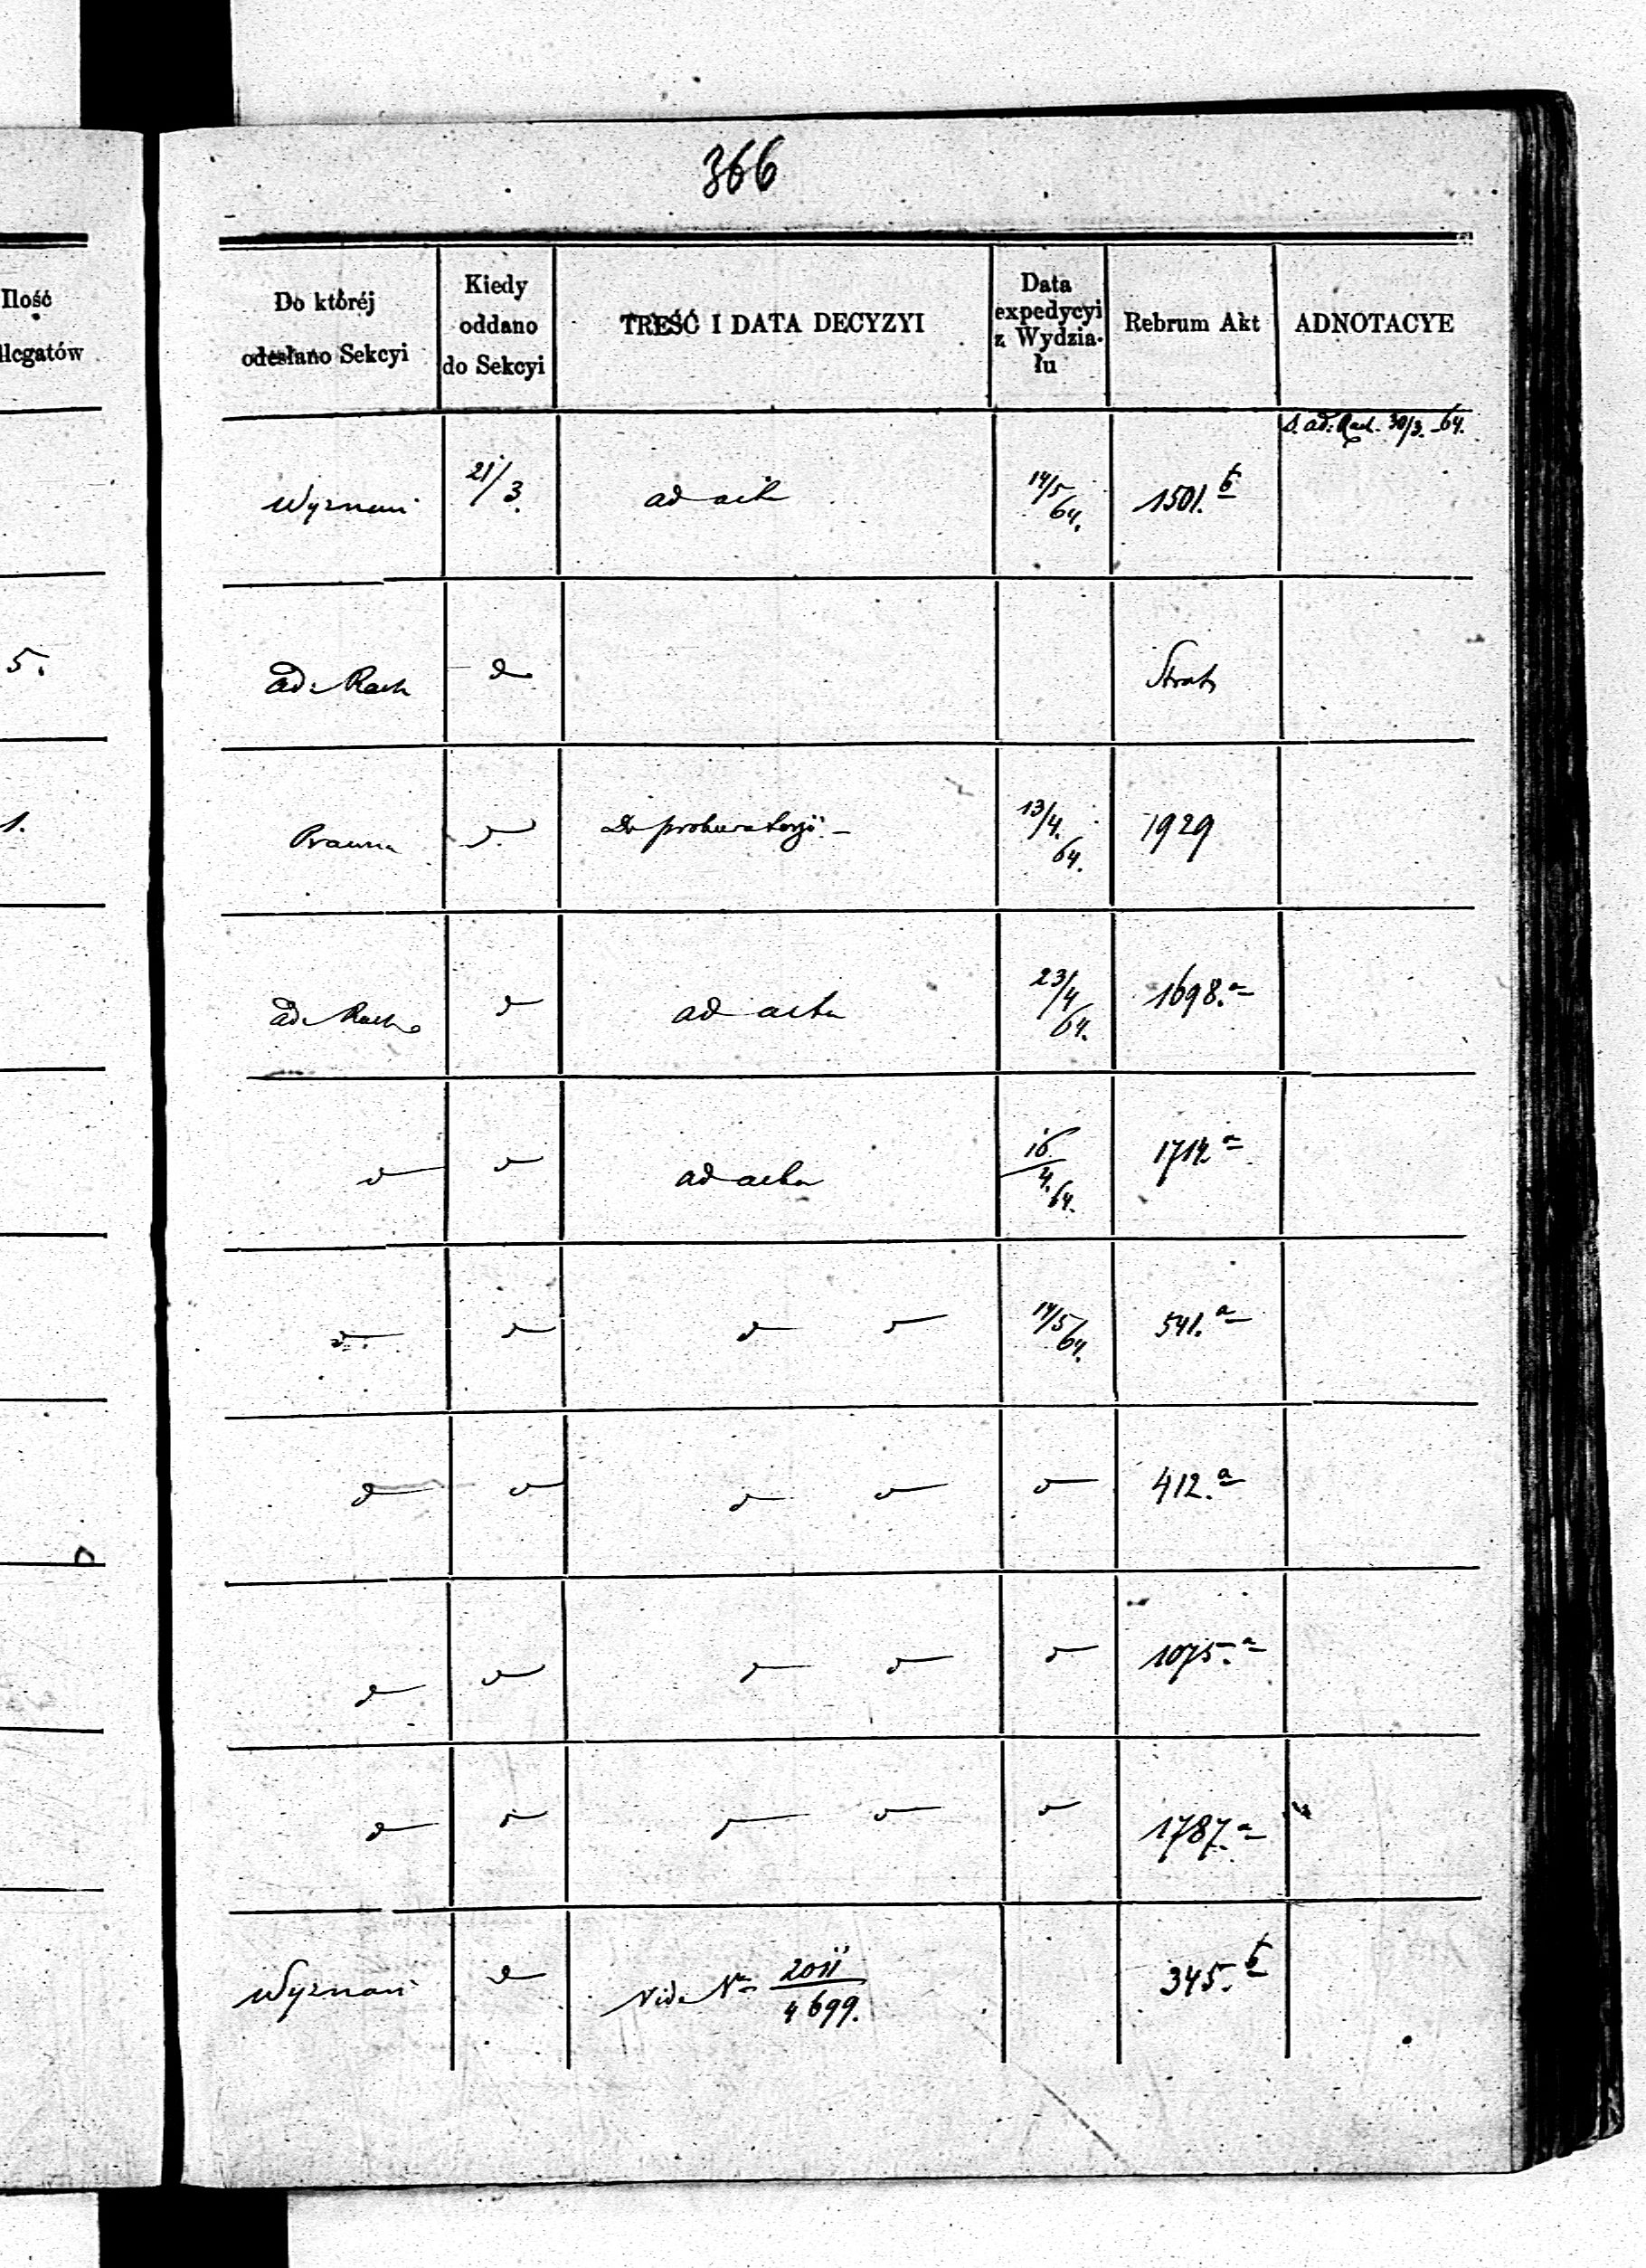 366
Ilość
llegatów
Do któréj
odesłano Sekcyi
Kiedy
oddano
do Sekcyi
TREŚĆ I DATA DECYZYI
Data
expedycyi
z Wydzia-
łu
Rebrum Akt
ADNOTACYE
30/3. 64.
Wyznań 21/3. ad acta 14/5 64. 1501. b
5.
ad. Rach Strat
1.
Prawna Do prokuratoryi 13/4. 64. 1929
ad. Rach ad acta 23/4 64. 1698. a
ad acta 16/4. 64. 1714 a
14/5 64. 541. a
412. a
1075. a
1787. a
Wyznań Vide No 2011/4699. 345. b